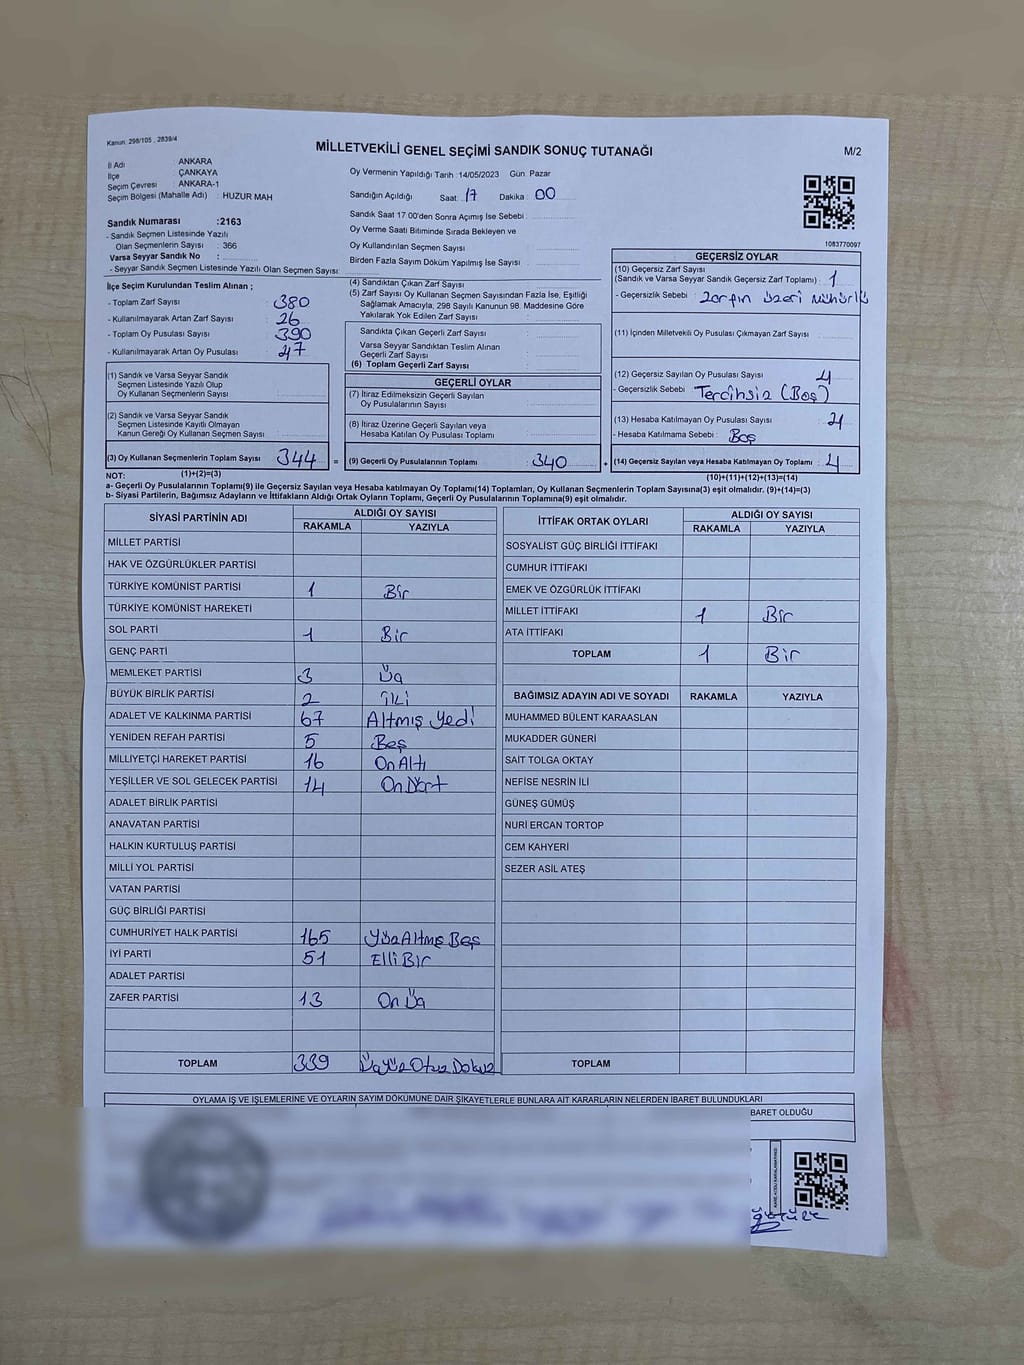 Kanun: 298/105 , 2839/4
MİLLETVEKİLİ GENEL SEÇİMİ SANDIK SONUÇ TUTANAĞI
M/2
İl Adı : ANKARA
İlçe : ÇANKAYA
Seçim Çevresi : ANKARA-1
Seçim Bölgesi (Mahalle Adı) : HUZUR MAH
Sandık Numarası :2163
- Sandık Seçmen Listesinde Yazılı
Olan Seçmenlerin Sayısı : 366
Varsa Seyyar Sandık No :
- Seyyar Sandık Seçmen Listesinde Yazılı Olan Seçmen Sayısı:
Oy Vermenin Yapıldığı Tarih :14/05/2023 Gün Pazar
Sandığın Açıldığı Saat: 17 Dakika : 00
Sandık Saat 17 00'den Sonra Açımış İse Sebebi :
Oy Verme Saati Bitiminde Sırada Bekleyen ve
Oy Kullandırılan Seçmen Sayısı :
Birden Fazla Sayım Döküm Yapılmış İse Sayısı :
1083770097
İlçe Seçim Kurulundan Teslim Alınan ;
- Toplam Zarf Sayısı : 380
- Kullanılmayarak Artan Zarf Sayısı : 26
- Toplam Oy Pusulası Sayısı : 390
- Kullanılmayarak Artan Oy Pusulası : 47
(1) Sandık ve Varsa Seyyar Sandık
Seçmen Listesinde Yazılı Olup
Oy Kullanan Seçmenlerin Sayısı :
(2) Sandık ve Varsa Seyyar Sandık
Seçmen Listesinde Kayıtlı Olmayan
Kanun Gereği Oy Kullanan Seçmen Sayısı :
(3) Oy Kullanan Seçmenlerin Toplam Sayısı : 344 =
(1)+(2)=(3)
(4) Sandıktan Çıkan Zarf Sayısı :
(5) Zarf Sayısı Oy Kullanan Seçmen Sayısından Fazla İse, Eşitliği
Sağlamak Amacıyla, 298 Sayılı Kanunun 98. Maddesine Göre
Yakılarak Yok Edilen Zarf Sayısı :
Sandıkta Çıkan Geçerli Zarf Sayısı :
Varsa Seyyar Sandıktan Teslim Alınan
Geçerli Zarf Sayısı :
(6) Toplam Geçerli Zarf Sayısı :
GEÇERLİ OYLAR
(7) İtiraz Edilmeksizin Geçerli Sayılan
Oy Pusulalarının Sayısı :
(8) İtiraz Üzerine Geçerli Sayılan veya
Hesaba Katılan Oy Pusulası Toplamı :
(9) Geçerli Oy Pusulalarının Toplamı : 340 +
GEÇERSİZ OYLAR
(10) Geçersiz Zarf Sayısı
(Sandık ve Varsa Seyyar Sandık Geçersiz Zarf Toplamı) : 1
- Geçersizlik Sebebi : Zarfın üzeri mühürlü
(11) İçinden Milletvekili Oy Pusulası Çıkmayan Zarf Sayısı :
(12) Geçersiz Sayılan Oy Pusulası Sayısı : 4
- Geçersizlik Sebebi : Tercihsiz (Boş)
(13) Hesaba Katılmayan Oy Pusulası Sayısı :
- Hesaba Katılmama Sebebi : Boş
(14) Geçersiz Sayılan veya Hesaba Katılmayan Oy Toplamı : 4
(10)+(11)+(12)+(13)=(14)
NOT:
a- Geçerli Oy Pusulalarının Toplamı(9) ile Geçersiz Sayılan veya Hesaba katılmayan Oy Toplamı(14) Toplamları, Oy Kullanan Seçmenlerin Toplam Sayısına(3) eşit olmalıdır. (9)+(14)=(3)
b- Siyasi Partilerin, Bağımsız Adayların ve İttifakların Aldığı Ortak Oyların Toplamı, Geçerli Oy Pusulalarının Toplamına(9) eşit olmalıdır.
SİYASİ PARTİNİN ADI ALDIĞI OY SAYISI
RAKAMLA YAZIYLA
MİLLET PARTİSİ
HAK VE ÖZGÜRLÜKLER PARTİSİ
TÜRKİYE KOMÜNİST PARTİSİ 1 Bir
TÜRKİYE KOMÜNİST HAREKETİ
SOL PARTİ 1 Bir
GENÇ PARTİ
MEMLEKET PARTİSİ 3 Üç
BÜYÜK BİRLİK PARTİSİ 2 İki
ADALET VE KALKINMA PARTİSİ 67 Altmış Yedi
YENİDEN REFAH PARTİSİ 5 Beş
MİLLİYETÇİ HAREKET PARTİSİ 16 On Altı
YEŞİLLER VE SOL GELECEK PARTİSİ 14 On Dört
ADALET BİRLİK PARTİSİ
ANAVATAN PARTİSİ
HALKIN KURTULUŞ PARTİSİ
MİLLİ YOL PARTİSİ
VATAN PARTİSİ
GÜÇ BİRLİĞİ PARTİSİ
CUMHURİYET HALK PARTİSİ 165 Yüz Altmış Beş
İYİ PARTİ 51 Elli Bir
ADALET PARTİSİ
ZAFER PARTİSİ 13 On Üç
TOPLAM 339 Üçyüz Otuz Dokuz
İTTİFAK ORTAK OYLARI ALDIĞI OY SAYISI
RAKAMLA YAZIYLA
SOSYALİST GÜÇ BİRLİĞİ İTTİFAKI
CUMHUR İTTİFAKI
EMEK VE ÖZGÜRLÜK İTTİFAKI
MİLLET İTTİFAKI 1 Bir
ATA İTTİFAKI
TOPLAM 1 Bir
BAĞIMSIZ ADAYIN ADI VE SOYADI RAKAMLA YAZIYLA
MUHAMMED BÜLENT KARAASLAN
MUKADDER GÜNERİ
SAİT TOLGA OKTAY
NEFİSE NESRİN İLİ
GÜNEŞ GÜMÜŞ
NURİ ERCAN TORTOP
CEM KAHYERİ
SEZER ASİL ATEŞ
TOPLAM
OYLAMA İŞ VE İŞLEMLERİNE VE OYLARIN SAYIM DÖKÜMÜNE DAİR ŞİKAYETLERLE BUNLARA AİT KARARLARIN NELERDEN İBARET BULUNDUKLARI
BARET OLDUĞU